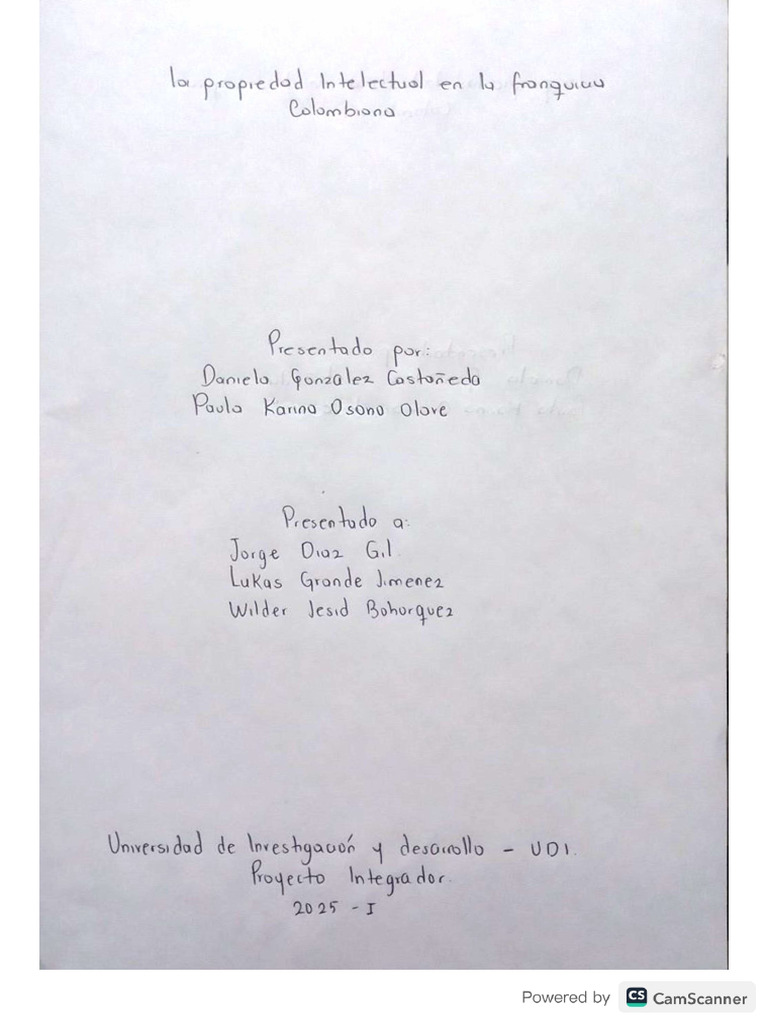 la propiedad Intelectual en la franquicia
Colombiana
Presentado por:
Daniela González Castañeda
Paula Karina Osorio Olave
Presentado a:
Jorge Diaz Gil.
Lukas Grande Jimenez
Wilder Jesid Bohorquez
Universidad de Investigación y desarrollo - UDI.
Proyecto Integrador.
2025 - I
Powered by CS CamScanner